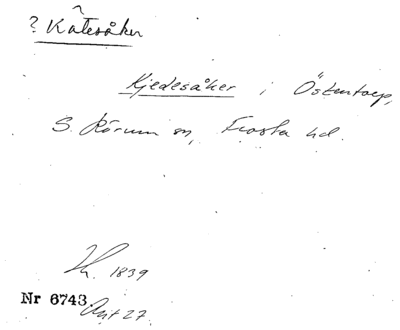 ? Kâtesåker
Kjedesåker i Östentorp,
S. Rörum sn, Frosta hd.
1839
Nr 6743
Ant 27.